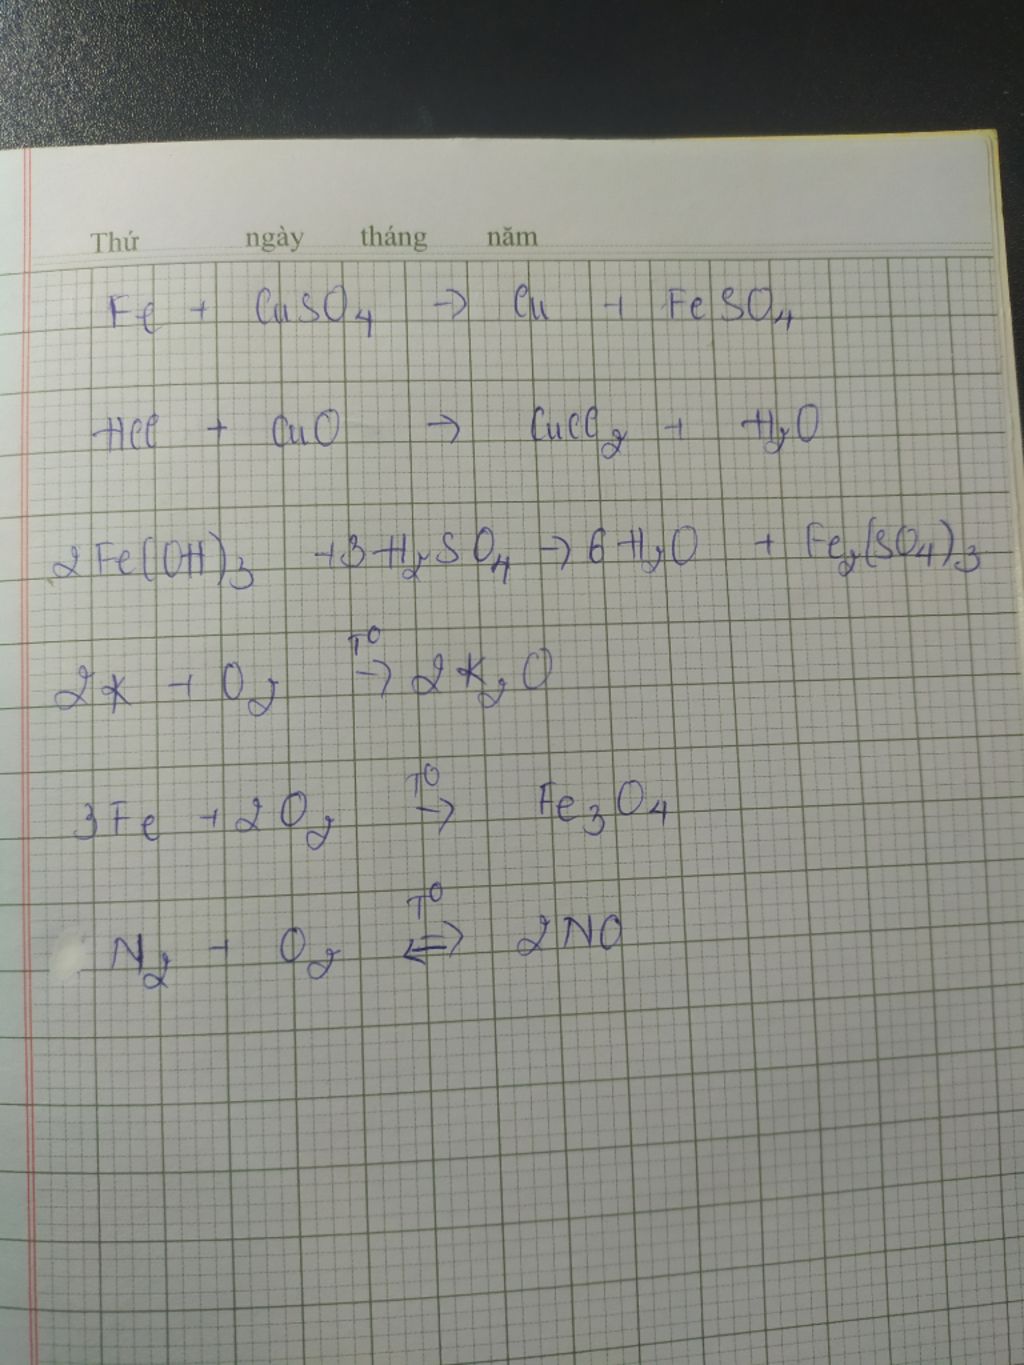 Thứ ngày tháng năm
Fe + CuSO₄ → Cu + FeSO₄
HCl + CuO → CuCl₂ + H₂O
2Fe(OH)₃ + 3H₂SO₄ → 6H₂O + Fe₂(SO₄)₃
T⁰
2K + O₂ → 2K₂O
T⁰
3Fe + 2O₂ → Fe₃O₄
T⁰
N₂ + O₂ ⇌ 2NO